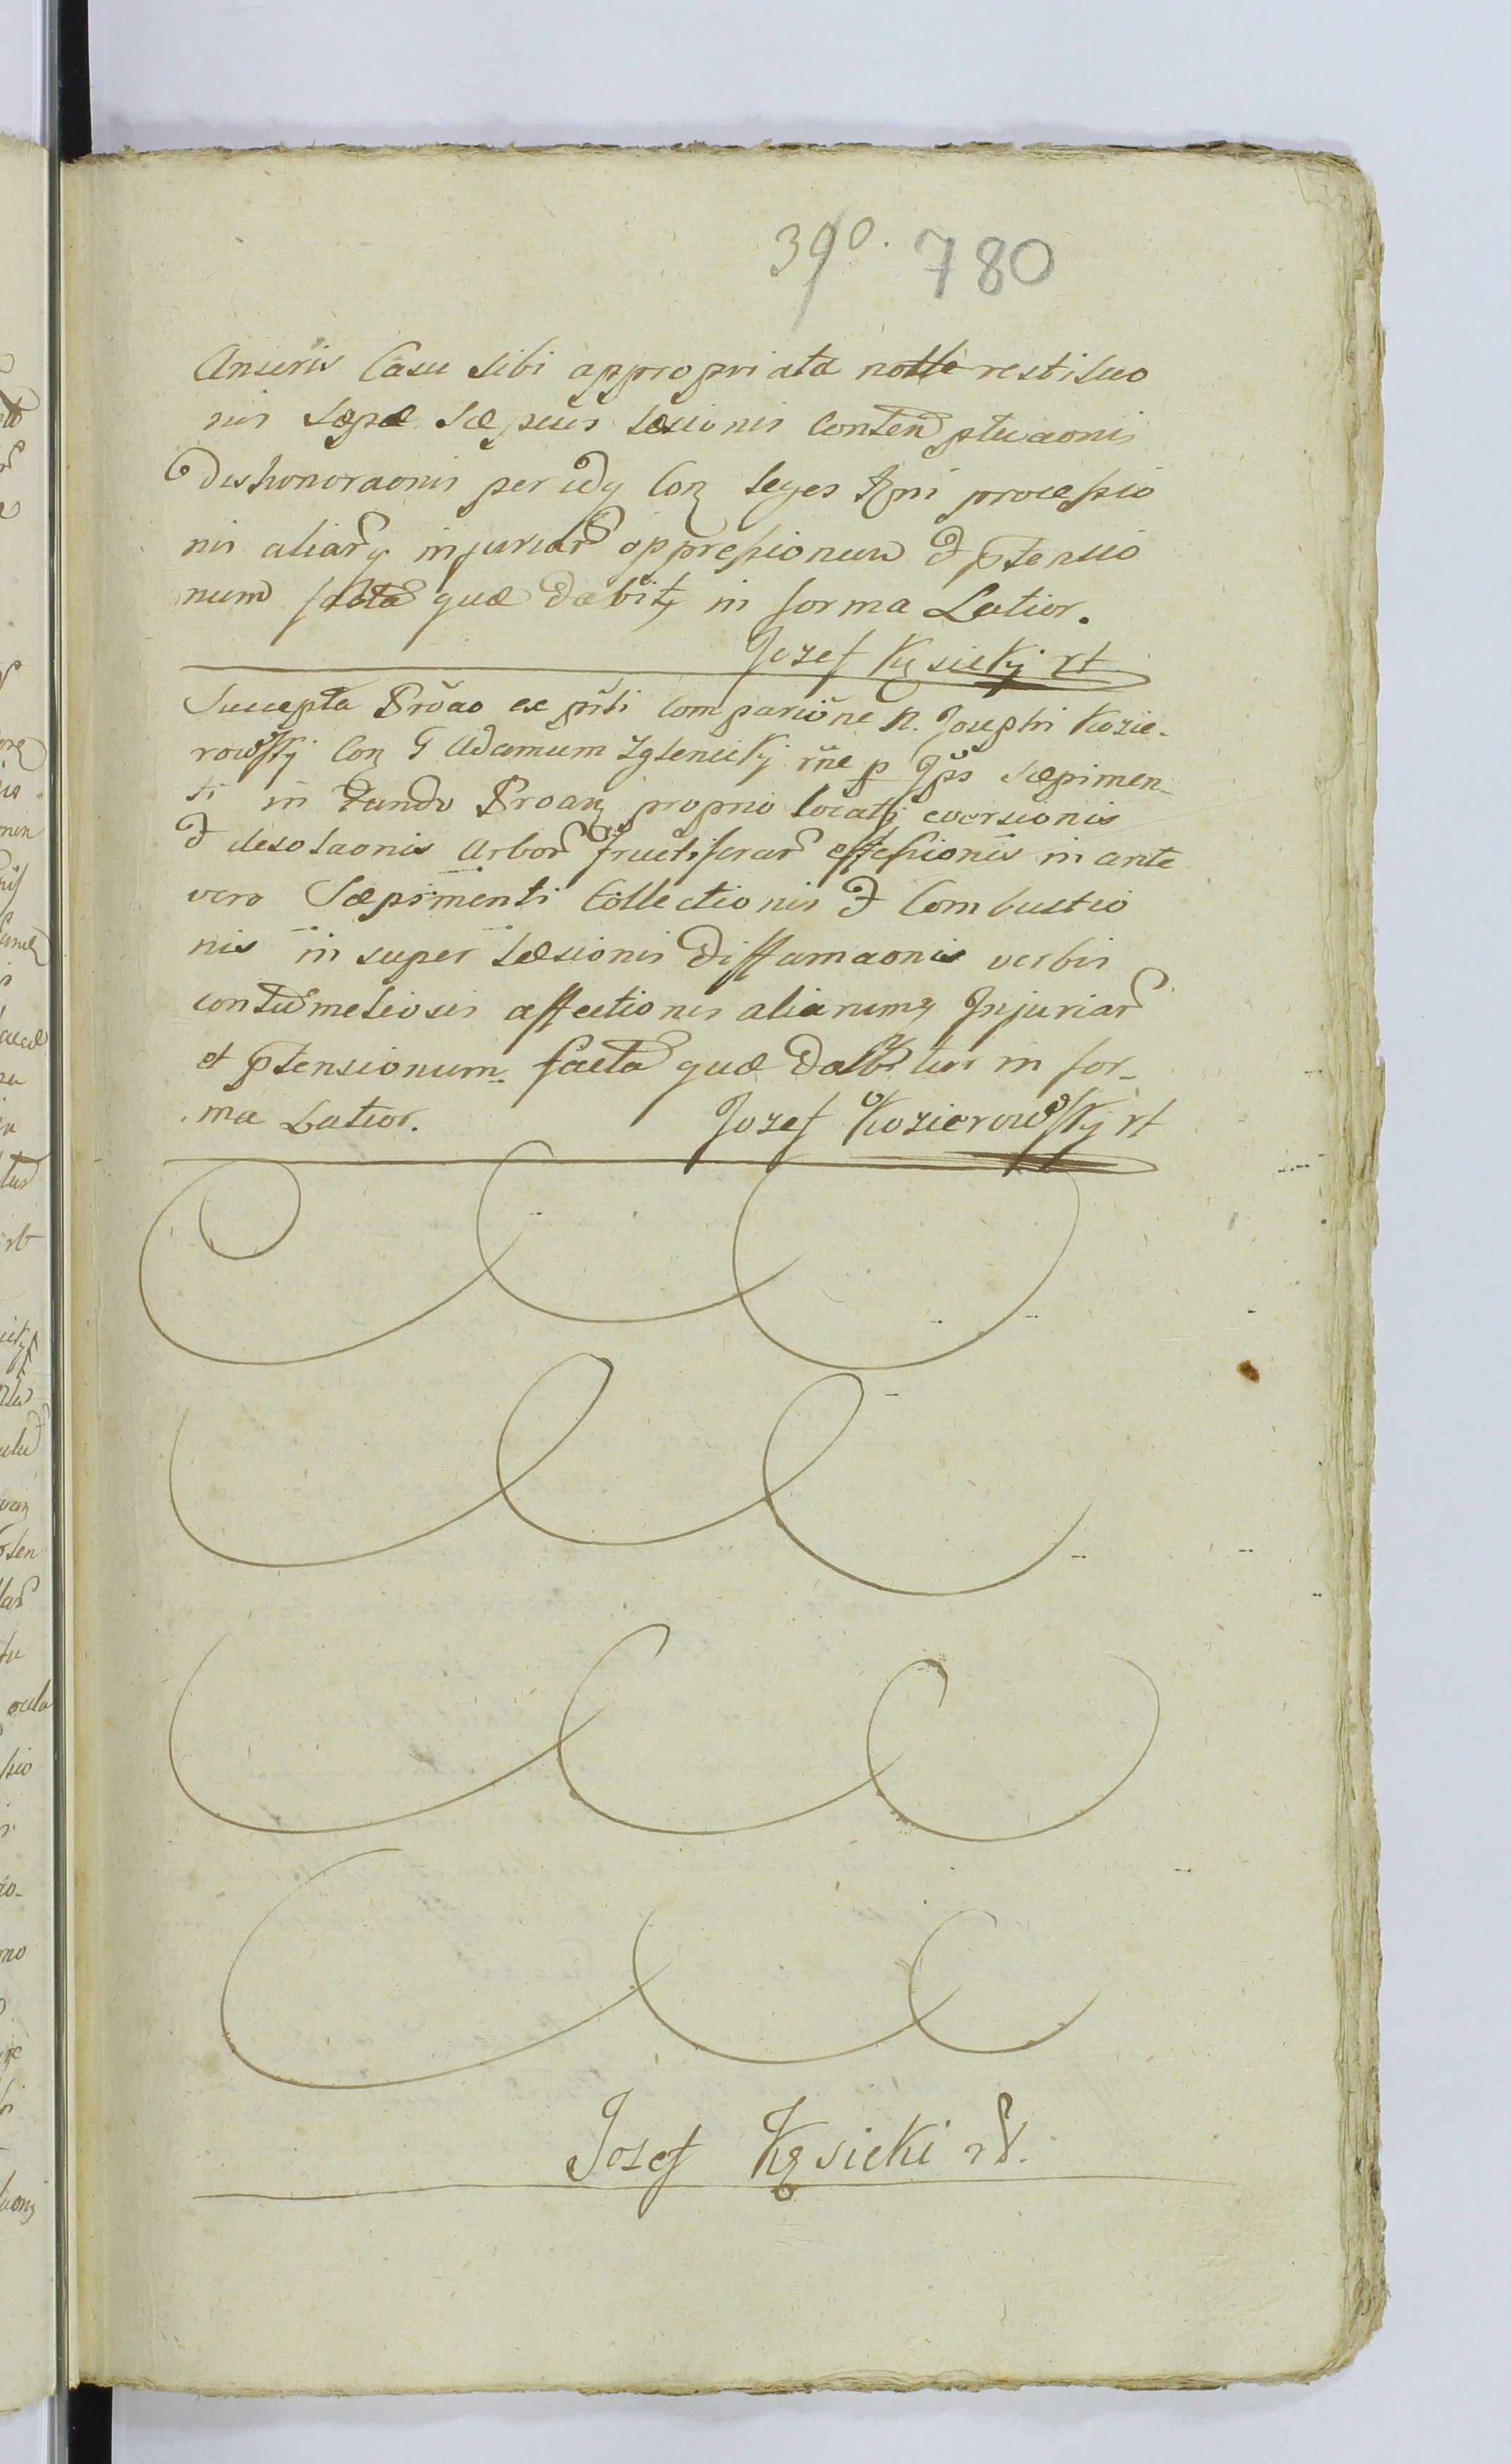 390. 780
Anseris Casu sibi appropriata nolle restituo
nis Sæpæ Sæpius Læsionis Contemptuaonis
Dishonoraonis per idq Con leges Rgni processio
nis aliarq injuriar oppressionum & ptensio
num facta quæ dabitr in forma Latior.
Jozef Kęsickÿ rt
Suscepta Proao ex prti Comparione N. Josephi Kozie-
rowsky Con G Adamum Zglenicky rne p Ips Sæpimen-
ti in Fundo Proan proprio locati eversionis
& desolaonis Arbor fructiferar inante
vero Sæpimenti Collectionis & Combustio
nis in super Læsionis Diffamaonis verbis
contumeliosis affectionis aliarumq Injuriar
et ptensionum facta quæ dabitur in for-
ma Latior. Jozef Kozierowsky rt
Jozef Kęsicki rt.